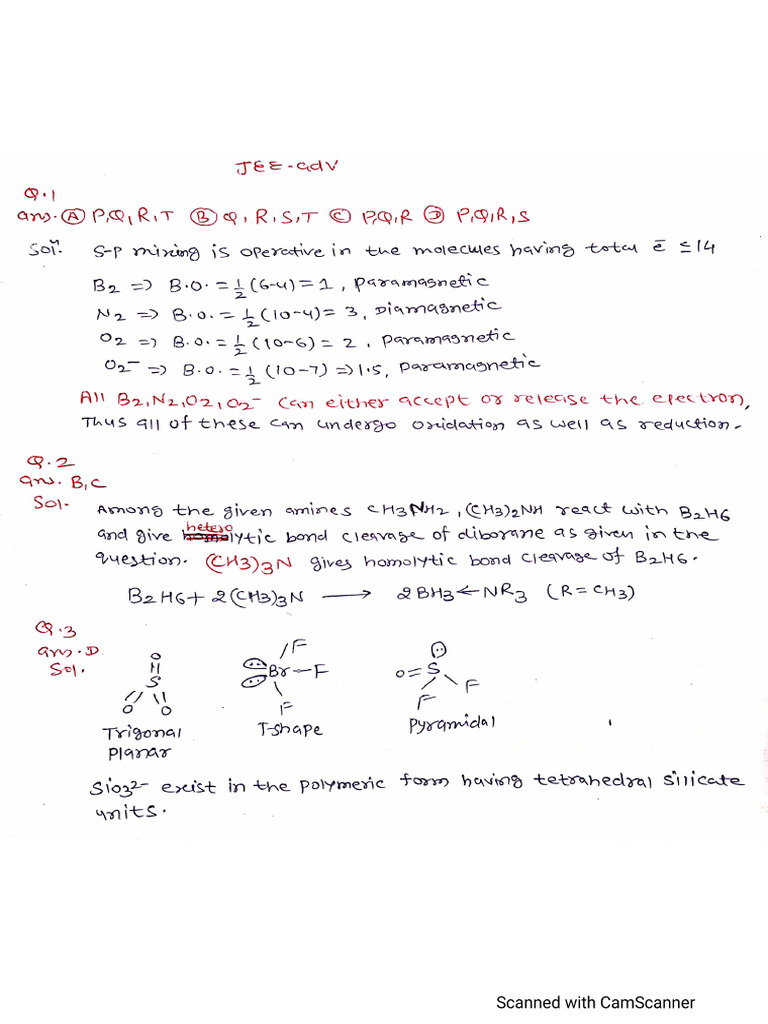 JEE-adv
Q.1
ans. Ⓐ P,Q,R,T Ⓑ Q,R,S,T Ⓒ P,Q,R Ⓓ P,Q,R,S
Solⁿ. S-P mixing is operative in the molecules having total ē ≤14
B2 => B.O. = 1/2 (6-4) = 1, Paramagnetic
N2 => B.O. = 1/2 (10-4) = 3, Diamagnetic
O2 => B.O. = 1/2 (10-6) = 2, Paramagnetic
O2⁻ => B.O. = 1/2 (10-7) => 1.5, Paramagnetic
All B2, N2, O2, O2⁻ can either accept or release the epectron,
Thus all of these can undergo oxidation as well as reduction.
Q.2
ans. B,C
Sol. Among the given amines CH3NH2, (CH3)2NH react with B2H6
and give heterolytic bond cleavage of diborane as given in the
question. (CH3)3N gives homolytic bond cleavage of B2H6.
B2H6 + 2(CH3)3N ⟶ 2BH3←NR3 (R = CH3)
Q.3
ans. D
Sol.
O
S
O O
F
Br-F
F
O=S
F F
Trigonal Planar
T-shape
Pyramidal
SiO3²⁻ exist in the polymeric form having tetrahedral silicate
units.
Scanned with CamScanner